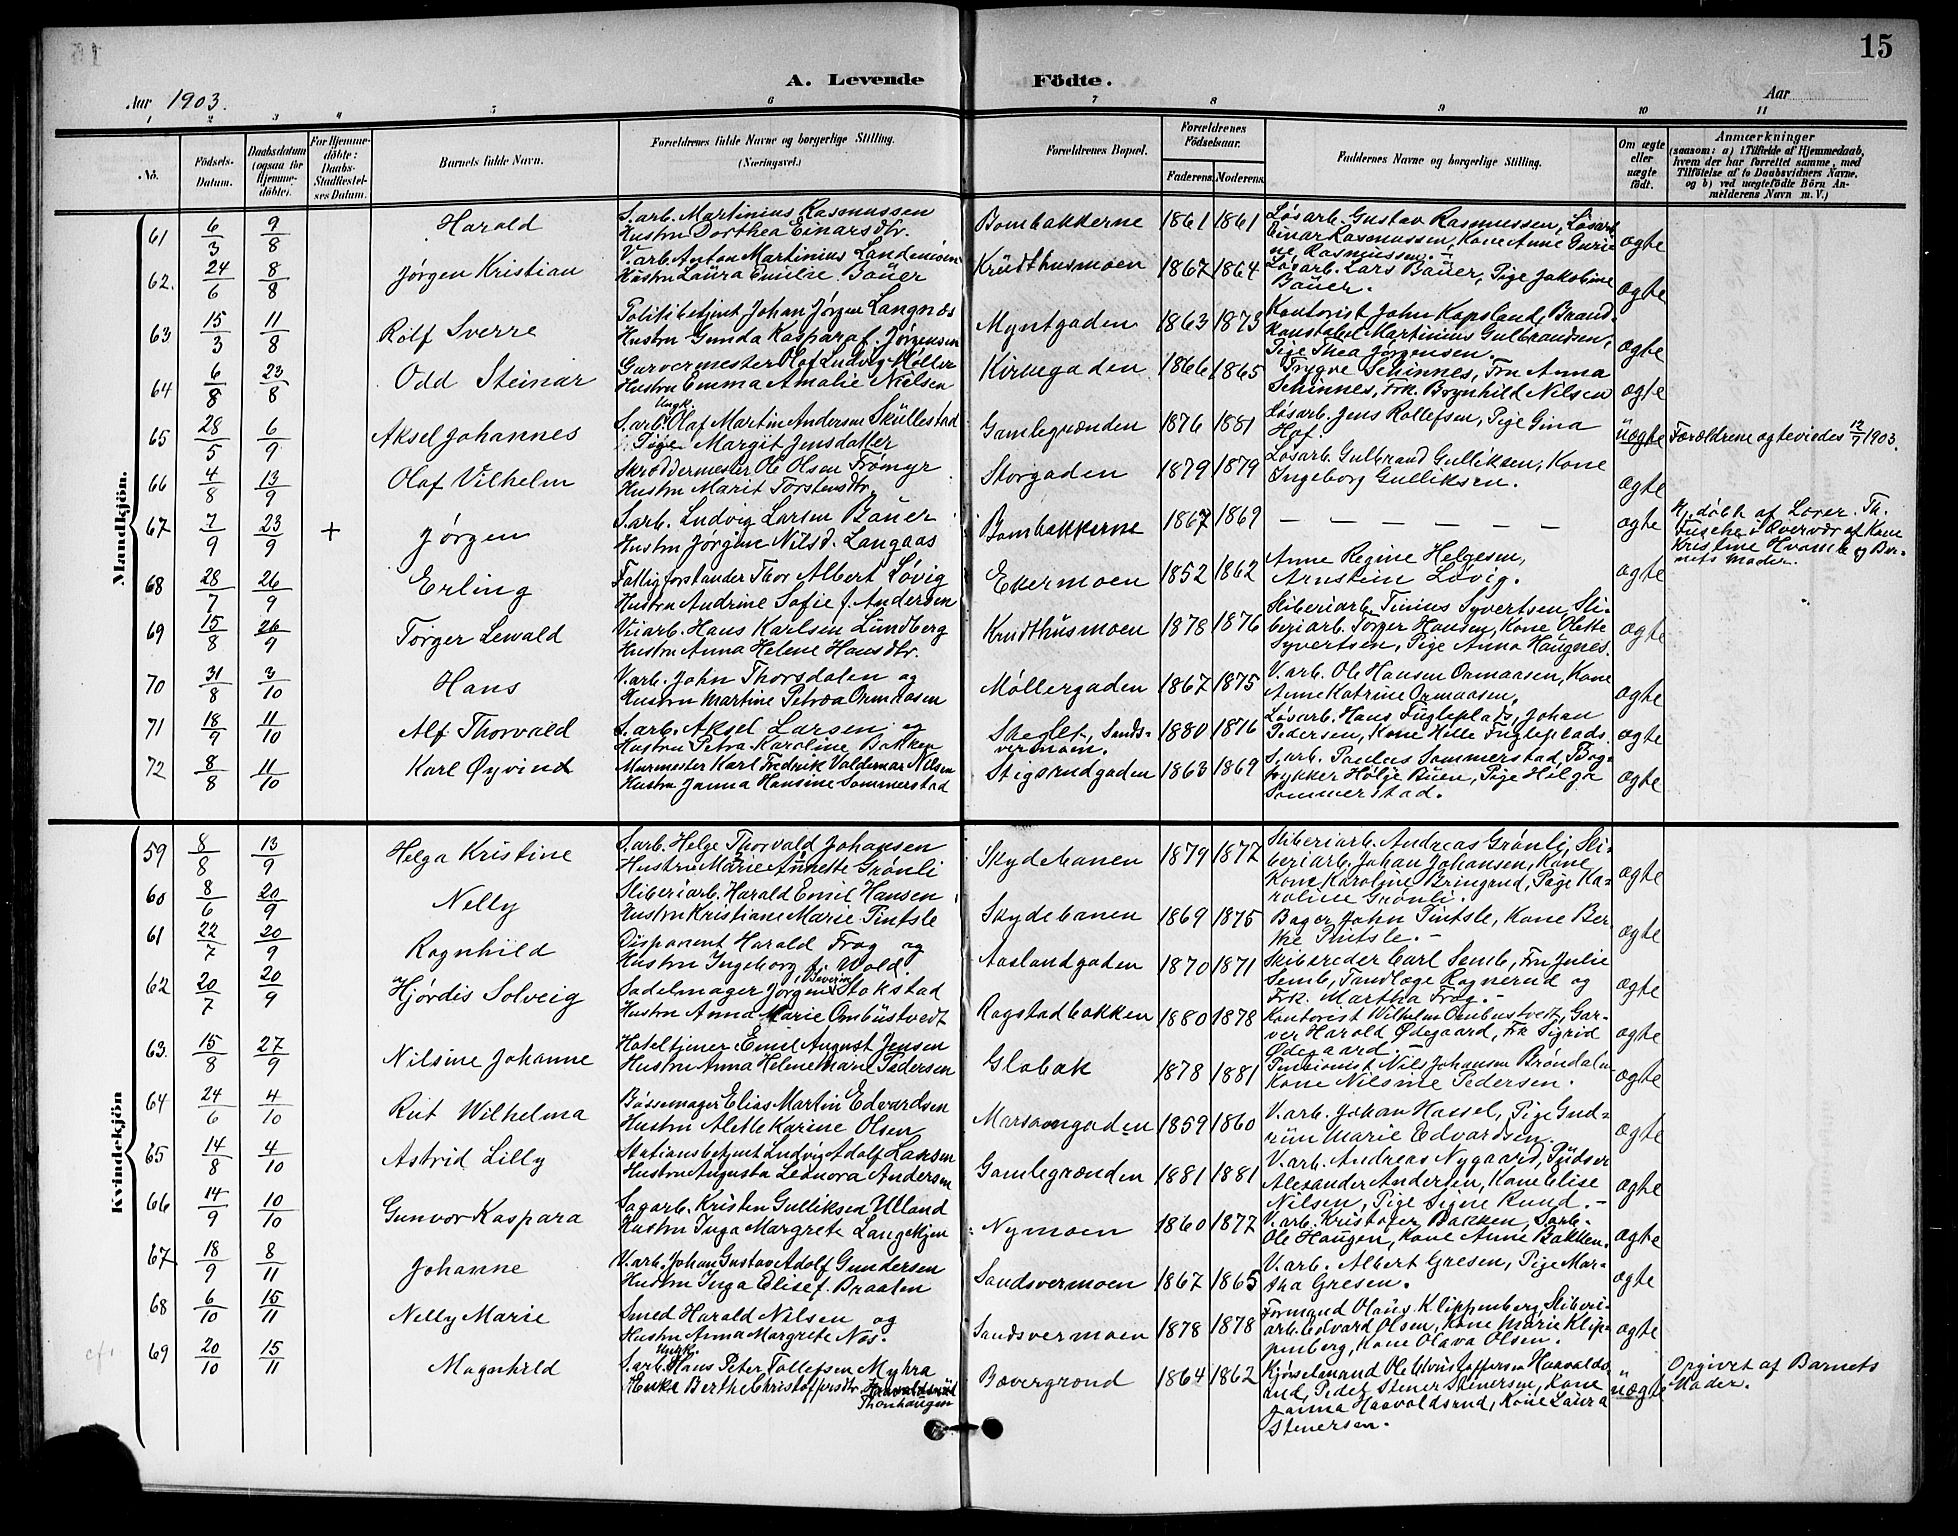 15
A. Levende Födte.
Aar 1903.
Aar
1 2 3 4 5 6 7 8 9 10 11
No.
Födsels-Datum.
Daabsdatum (ogsaa for Hjemme-döbte).
For Hjemme-döbte: Daabs-Stadfæstel-ses Datum.
Barnets fulde Navn.
Forældrenes fulde Navne og borgerlige Stilling. (Næringsvei.)
Forældrenes Bopæl.
Forældrenes Födselsaar.
Faderens. Moderens.
Faddernes Navne og borgerlige Stilling.
Om ægte eller uægte födt.
Anmærkninger (saasom: a) i Tilfælde af Hjemmedaab, hvem der har forrettet samme, med Tilföielse af to Daabsvidners Navne, og b) ved uægtefödte Börn An-melderens Navn m. V.)
Mandkjön.
61 6/3 9/8 Harald
S.arb. Martinius Rasmussen
Hustru Dorthea Einarsdtr.
Bombakkerne 1861 1861
Løsarb. Gustav Rasmussen, Løsarb.
Einar Rasmussen, Kone Anne
Rasmussen.
ægte
62. 24/6 8/8 Jørgen Kristian
V.arb. Anton Martinius
Hustru Laura Emilie Baüer
Krüdthusmoen 1867 1864
Løsarb. Lars Baüer, Pige Jakobine
Baüer.
ægte
63 15/3 11/8 Rolf Sverre
Politibetjent Johan Jørgen Langnæs
Hustru Gunda Kaspara f. Jørgensen
Myntgaden 1863 1873
Kontorist John Kopsland, Brand-
konstabel Martinius Gulbrandsen,
Pige Thea Jørgensen.
ægte
64 6/8 23/8 Odd Steinar
Garvermester Olaf Ludvig Møller
Hustru Emma Amalie Nielsen
Kirkegaden 1866 1865
Trygve Schinnes, Fru Anna
Schinnes, Frk. Brynhild Nilsen
ægte
65 28/5 6/9 Aksel Johannes
Ungk.
S.arb. Olaf Martin Andersen Sküllestad
Pige Margit Jensdatter
Gamlegrænden 1876 1881
Løsarb. Jens Rollefsen, Pige Gina
Hof.
üægte
Forældrene ægteviedes 12/9 1903.
66 4/8 13/9 Olaf Vilhelm
Skræddermester Ole Olsen Tromyr
Hustru Marit Torstensdtr.
Storgaden 1879 1879
Løsarb. Gulbrand Gulliksen, Kone
Ingeborg Gulliksen.
ægte
67 7/9 23/9 + Jørgen
S.arb. Ludvig Larsen Baüer
Hustru Jørgine Nilsd. Langaas
Bombakkerne 1867 1869
— — — — — — —
ægte
Hj. døbt af Lærer Th.
i Overvær af Kone
Kristine og Bar-
nets Moder.
68 28/7 26/9 Erling
Fattigforstander Thor Albert Løvig
Hustru Andrine Sofie f. Andersen
Ekermoen 1852 1862
Anne Regine Helgesen,
Arnstein Løvig.
ægte
69 15/8 26/9 Torger Lewald
Veiarb. Hans Karlsen Lundberg
Hustru Anna Helene Hansdtr.
Krudthüsmoen 1878 1876
Sliberiarb. Tinius Syvertsen, Sli-
beriarb. Torger Hansen, Kone Olette
Syvertsen, Pige Anna Haugnes.
ægte
70 31/8 3/10 Hans
V.arb. John Thorsdalen og
Hustru Martine Petræa Ormaasen
Møllergaden 1867 1875
V.arb. Ole Hansen Ormaasen, Kone
Anne Katrine Ormaasen,
ægte
71 18/9 11/10 Alf Thorvald
S.arb. Aksel Larsen og
Hustru Petra Karoline Bakken
Sands-
vermoen. 1880 1876
Løsarb. Hans Fugleplads, Johan
Pedersen, Kone Helle Fugleplads.
ægte
72 8/8 11/10 Karl Øyvind
Murmester Karl Fredrik Valdemar Nilsen
Hustru Janna Hansine Sommerstad
Stigerudgaden 1863 1869
S.arb. Paulus Sommerstad, Bog-
trykker Helge Buen, Pige Helga
Sommerstad.
ægte
Kvindekjön
59 8/8 13/9 Helga Kristine
S.arb. Helge Thorvald Johansen
Hustru Marie Annette Grønli
Skydebanen 1879 1877
Sliberiarb. Andreas Grønli, Sli-
beriarb. Johan Johansen, Kone
Kone Karoline Bringerud, Pige Ka-
roline Grønli.
ægte
60 8/6 20/9 Nelly
Sliberiarb. Harald Emil Hansen
Hustru Kristiane Marie Pintsle
Skydebanen 1869 1875
Bager John Pintsle, Kone Ber-
the Pintsle.
ægte
61 22/7 20/9 Ragnhild
Disponent Harald Frog og
Hustru Ingeborg f. Wold.
Aaslandgaden 1870 1871
Skibsreder Carl Semb, Fru Julie
Semb, Tandlæge Rognerud og
Frk. Martha Frog.
ægte
62 20/7 20/9 Hjördis Solveig
Sadelmager Jørgen Stokstad
Hustru Anna Marie Ombüstvedt
Rogstadbakken 1880 1878
Kontorist Wilhelm Ombustvedt, Gar-
ver Harald Ødegaard, Fr. Sigrid
Ødegaard.
ægte
63. 15/8 27/9 Nilsine Johanne
Hoteltjener Emil August Jensen
Hustru Anna Helene Marie Pedersen
Glabak 1878 1881
Pensionist Nils Johansen Brøndalen
Kone Nilsine Pedersen.
ægte
64 24/6 4/10 Rut Wilhelma
Bøssemager Elias Martin Edvardsen
Hustru Alette Karine Olsen
1859 1860
V.arb. Johan Hassel, Pige Gud-
rün Marie Edvardsen.
ægte
65 14/8 4/10 Astrid Lilly
Stationsbetjent Ludvig Adolf Larsen
Hustru Augusta Leonora Andersen
Gamlegrænden 1881 1881
V.arb. Andreas Nygaard, Püdser
Alexander Andersen, Kone Elise
Nilsen, Pige Signe Rund.
ægte
66 14/9 10/10 Gunvor Kaspara
Sagarb. Kristen Gulliksen Ulland
Hustru Inga Margrete Langekjen
Nymoen 1860 1877
V.arb. Kristofer Bakken, S.arb.
Ole Haugen, Kone Anne Bakken.
ægte
67 18/9 8/11 Johanne
V.arb. Johan Gustav Adolf Gundersen
Hustru Inga Elise f. Braaten
Sandsvermoen 1867 1865
V.arb. Albert Gresen, Pige Mar-
tha Gresen.
ægte
68 6/10 15/11 Nelly Marie
Smed Harald Nilsen og
Hustru Anna Margrete Næs.
Sandsvermoen 1878 1878
Formand Olaüs Klippenberg, Sliberi-
arb. Edvard Olsen, Kone Marie Klip-
penberg, Kone Olava Olsen.
ægte
69 20/10 15/11 Magnhild
Ungk.
S.arb. Hans Peter Tollefsen Myhra
Enke Berthe Christoffersdtr.
Thonhaugen
Bævergrænd 1864 1862
Kjørselmand Ole Christoffersen Haavalds-
rud, Peder Stener Stenersen, Kone
Janna Haavaldsrud, Kone Laura
Stenersen.
üægte
Opgivet af Barnets
Moder.